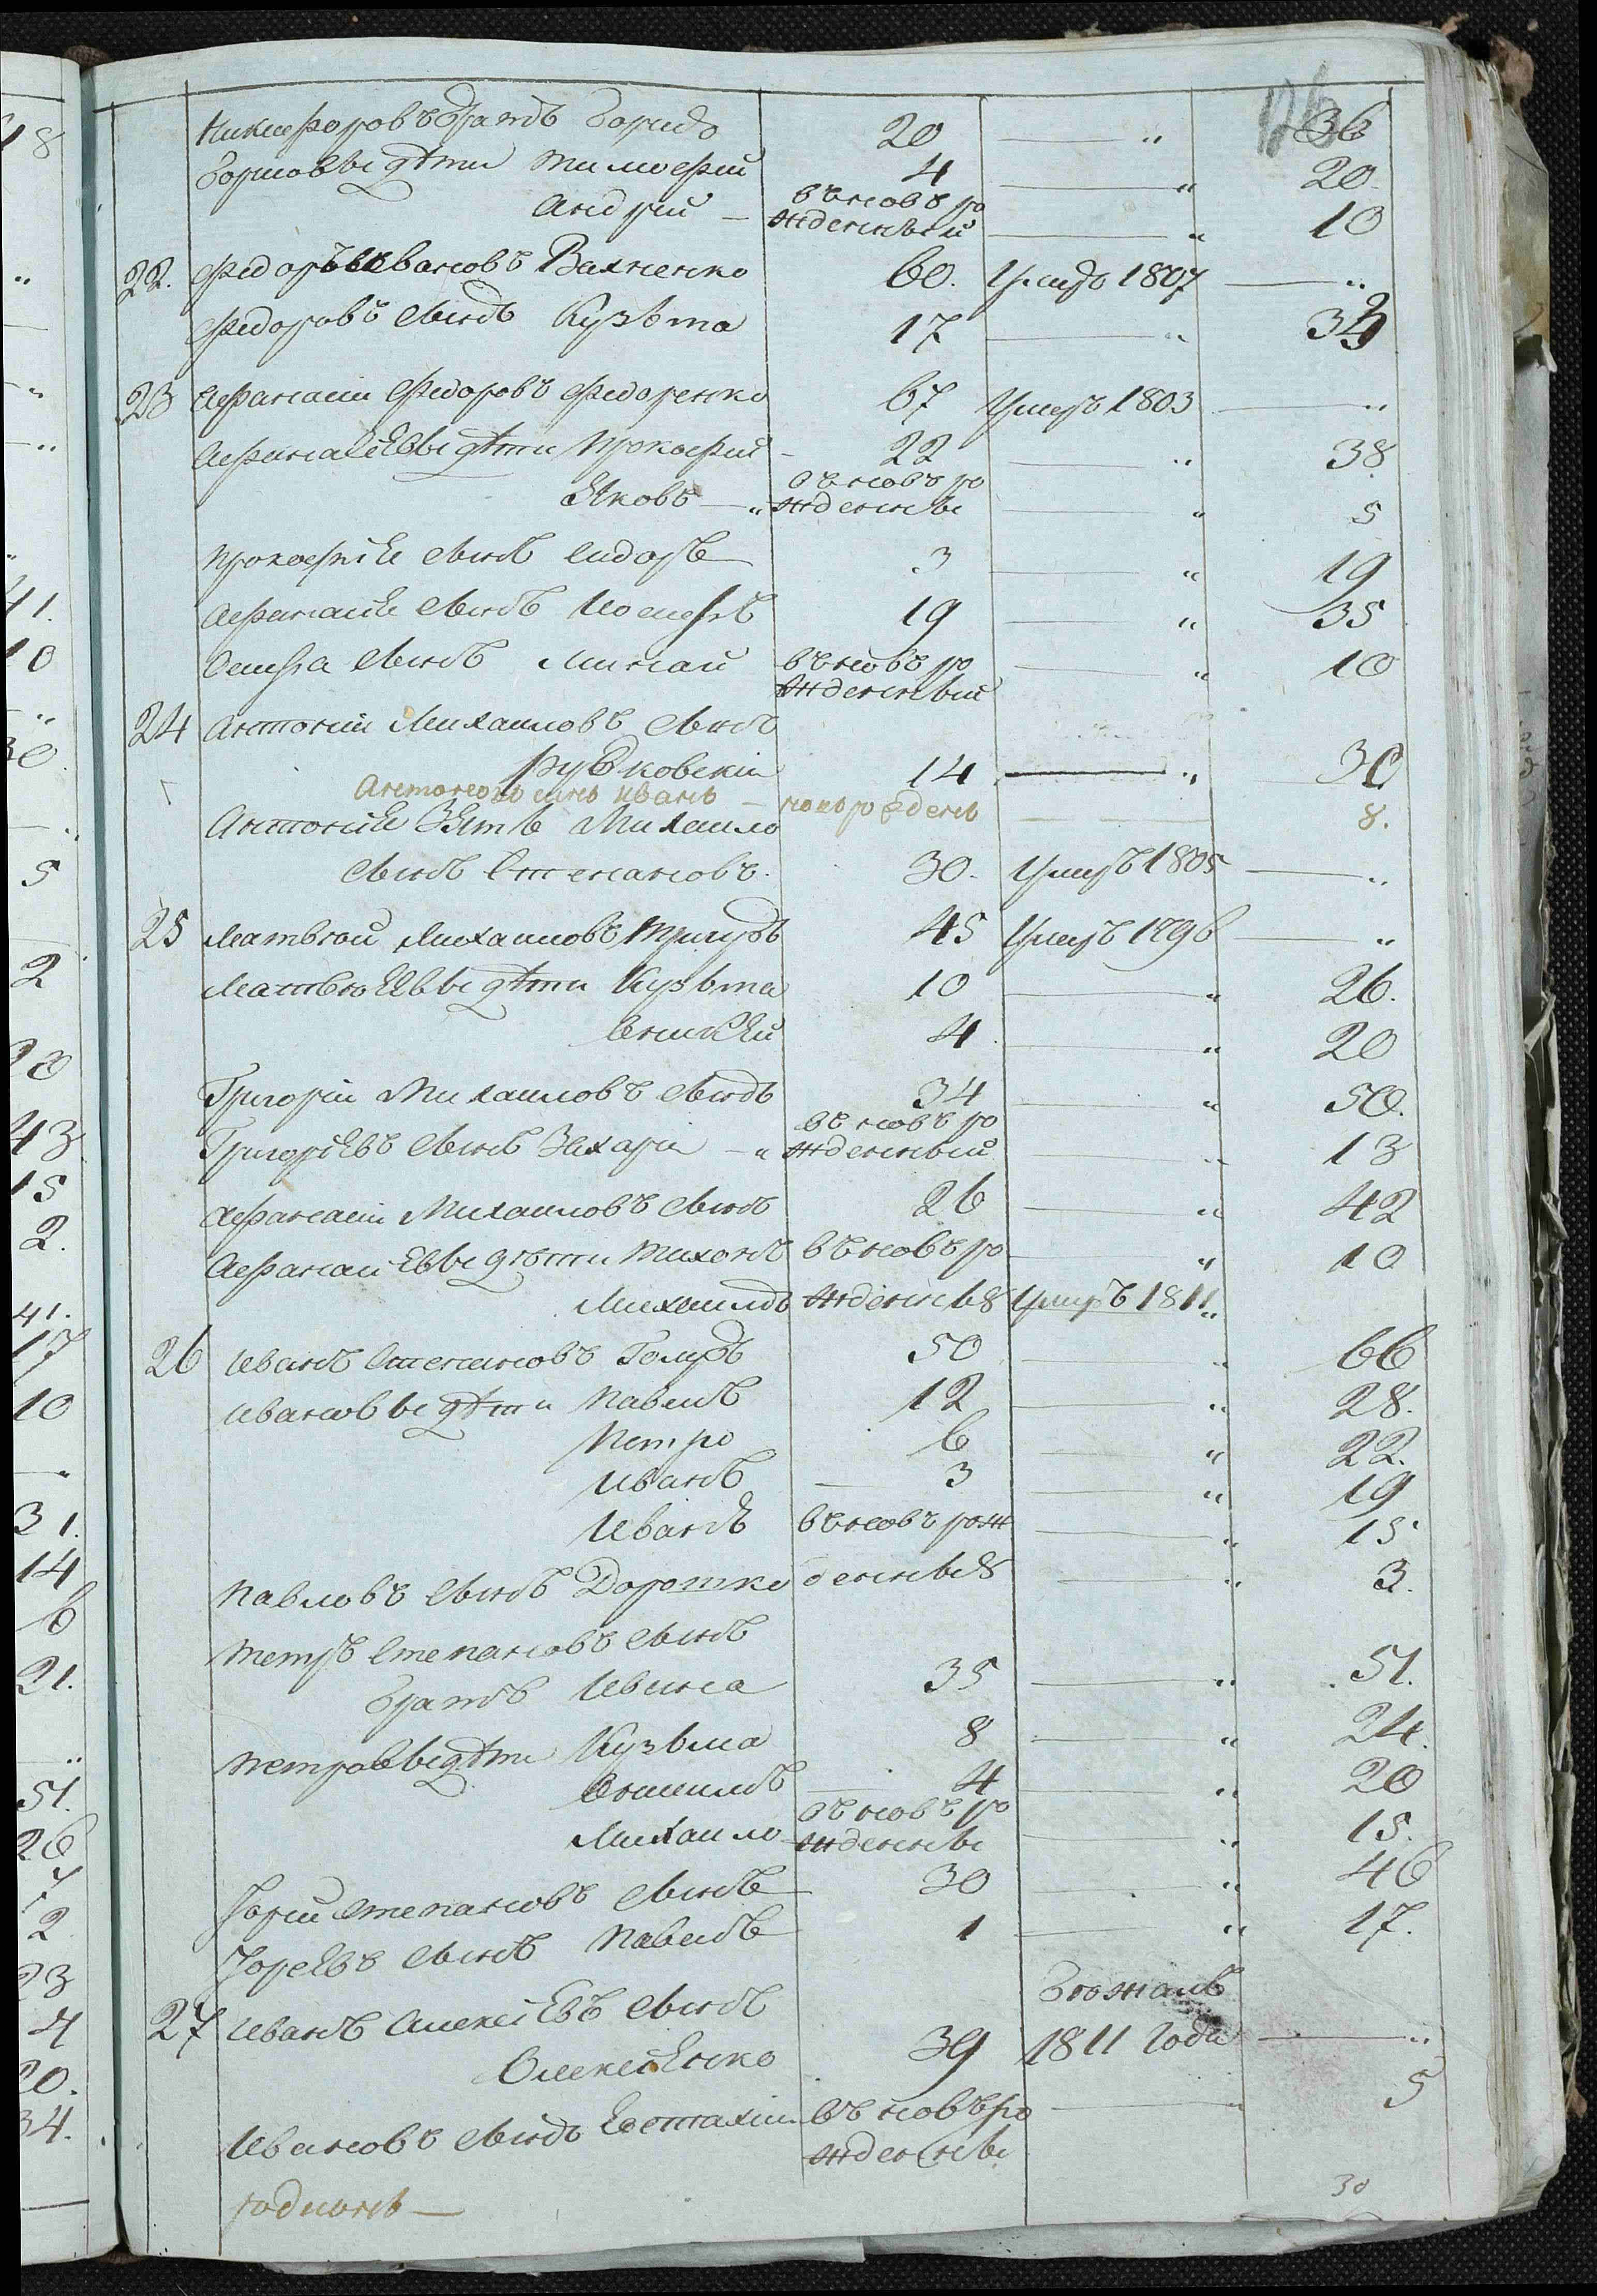 126
Никифоровъ братъ Борисъ 20 — „ 36
Борисовы дѣти Тимофей 4 — „ 20.
Андрей — въновь ро
жденный — „ 10
22. Федоръ Ивановъ Вахненко 60. Умеръ 1807 — „
Федоровъ сынъ Кузьма 17 — „ 33
23 Афанасий Федоровъ Федоренко 67 Умеръ 1803 — „
Афанасиевы дѣти Прокофий - 22 — „ 38
въновъ ро
Яковъ — „ жденны — „ 5
Прокофия сынъ Сидоръ 3 — „ 19
Афанасия сынъ Иосифъ 19 — „ 35
Осифа сынъ Минай въновъ ро — „ 10
жденный
24 Антоний Михайловъ сынъ
Рудковский 14 — „ 30
Антоновъ сынъ Иванъ — новорожденъ — 8.
Антония Зять Михайло
сынъ Степановъ. 30. Умеръ 1805 — „
25 Матвей Михайловъ Тригубъ 45 Умеръ 1796 — „
Матвеевы дѣти Кузьма 10 — „ 26.
Оникей 4 — „ 20
Григорий Михайловъ сынъ 34 — „ 50.
въновъ ро
Григориевъ сынъ Захарий — „ жденный — „ 13
Афанасий Михайловъ сынъ 26 — „ 42
Афанасиевы дѣти Тихонъ въновъ ро — „ 10
Михайлъ жденные Умеръ 1811 „
26 Иванъ Степановъ Голубъ 50 — „ 66
Ивановы дѣти Павелъ 12 — „ 28.
Петро 6 — „ 22.
Иванъ — 3 — „ 19
Иванъ въновъ рож — „ 15
Павловъ сынъ Дорошко денные — „ 3.
Петръ Степановъ сынъ
братъ Ивана 35 — „ 51.
Петровы дѣти Кузьма 8 — „ 24.
4 — „ 20
въновъ ро
Михайло жденны — „ 15.
Юрий Степановъ сынъ 30 — „ 46
Юрьевъ сынъ Павелъ 1 — „ 17.
27 Иванъ Алексиевъ сынъ бежалъ
Олексиенко 39 1811 года — „
Ивановъ сынъ Евстахий въновъ ро — „ 5
жденны
Родионъ —
30